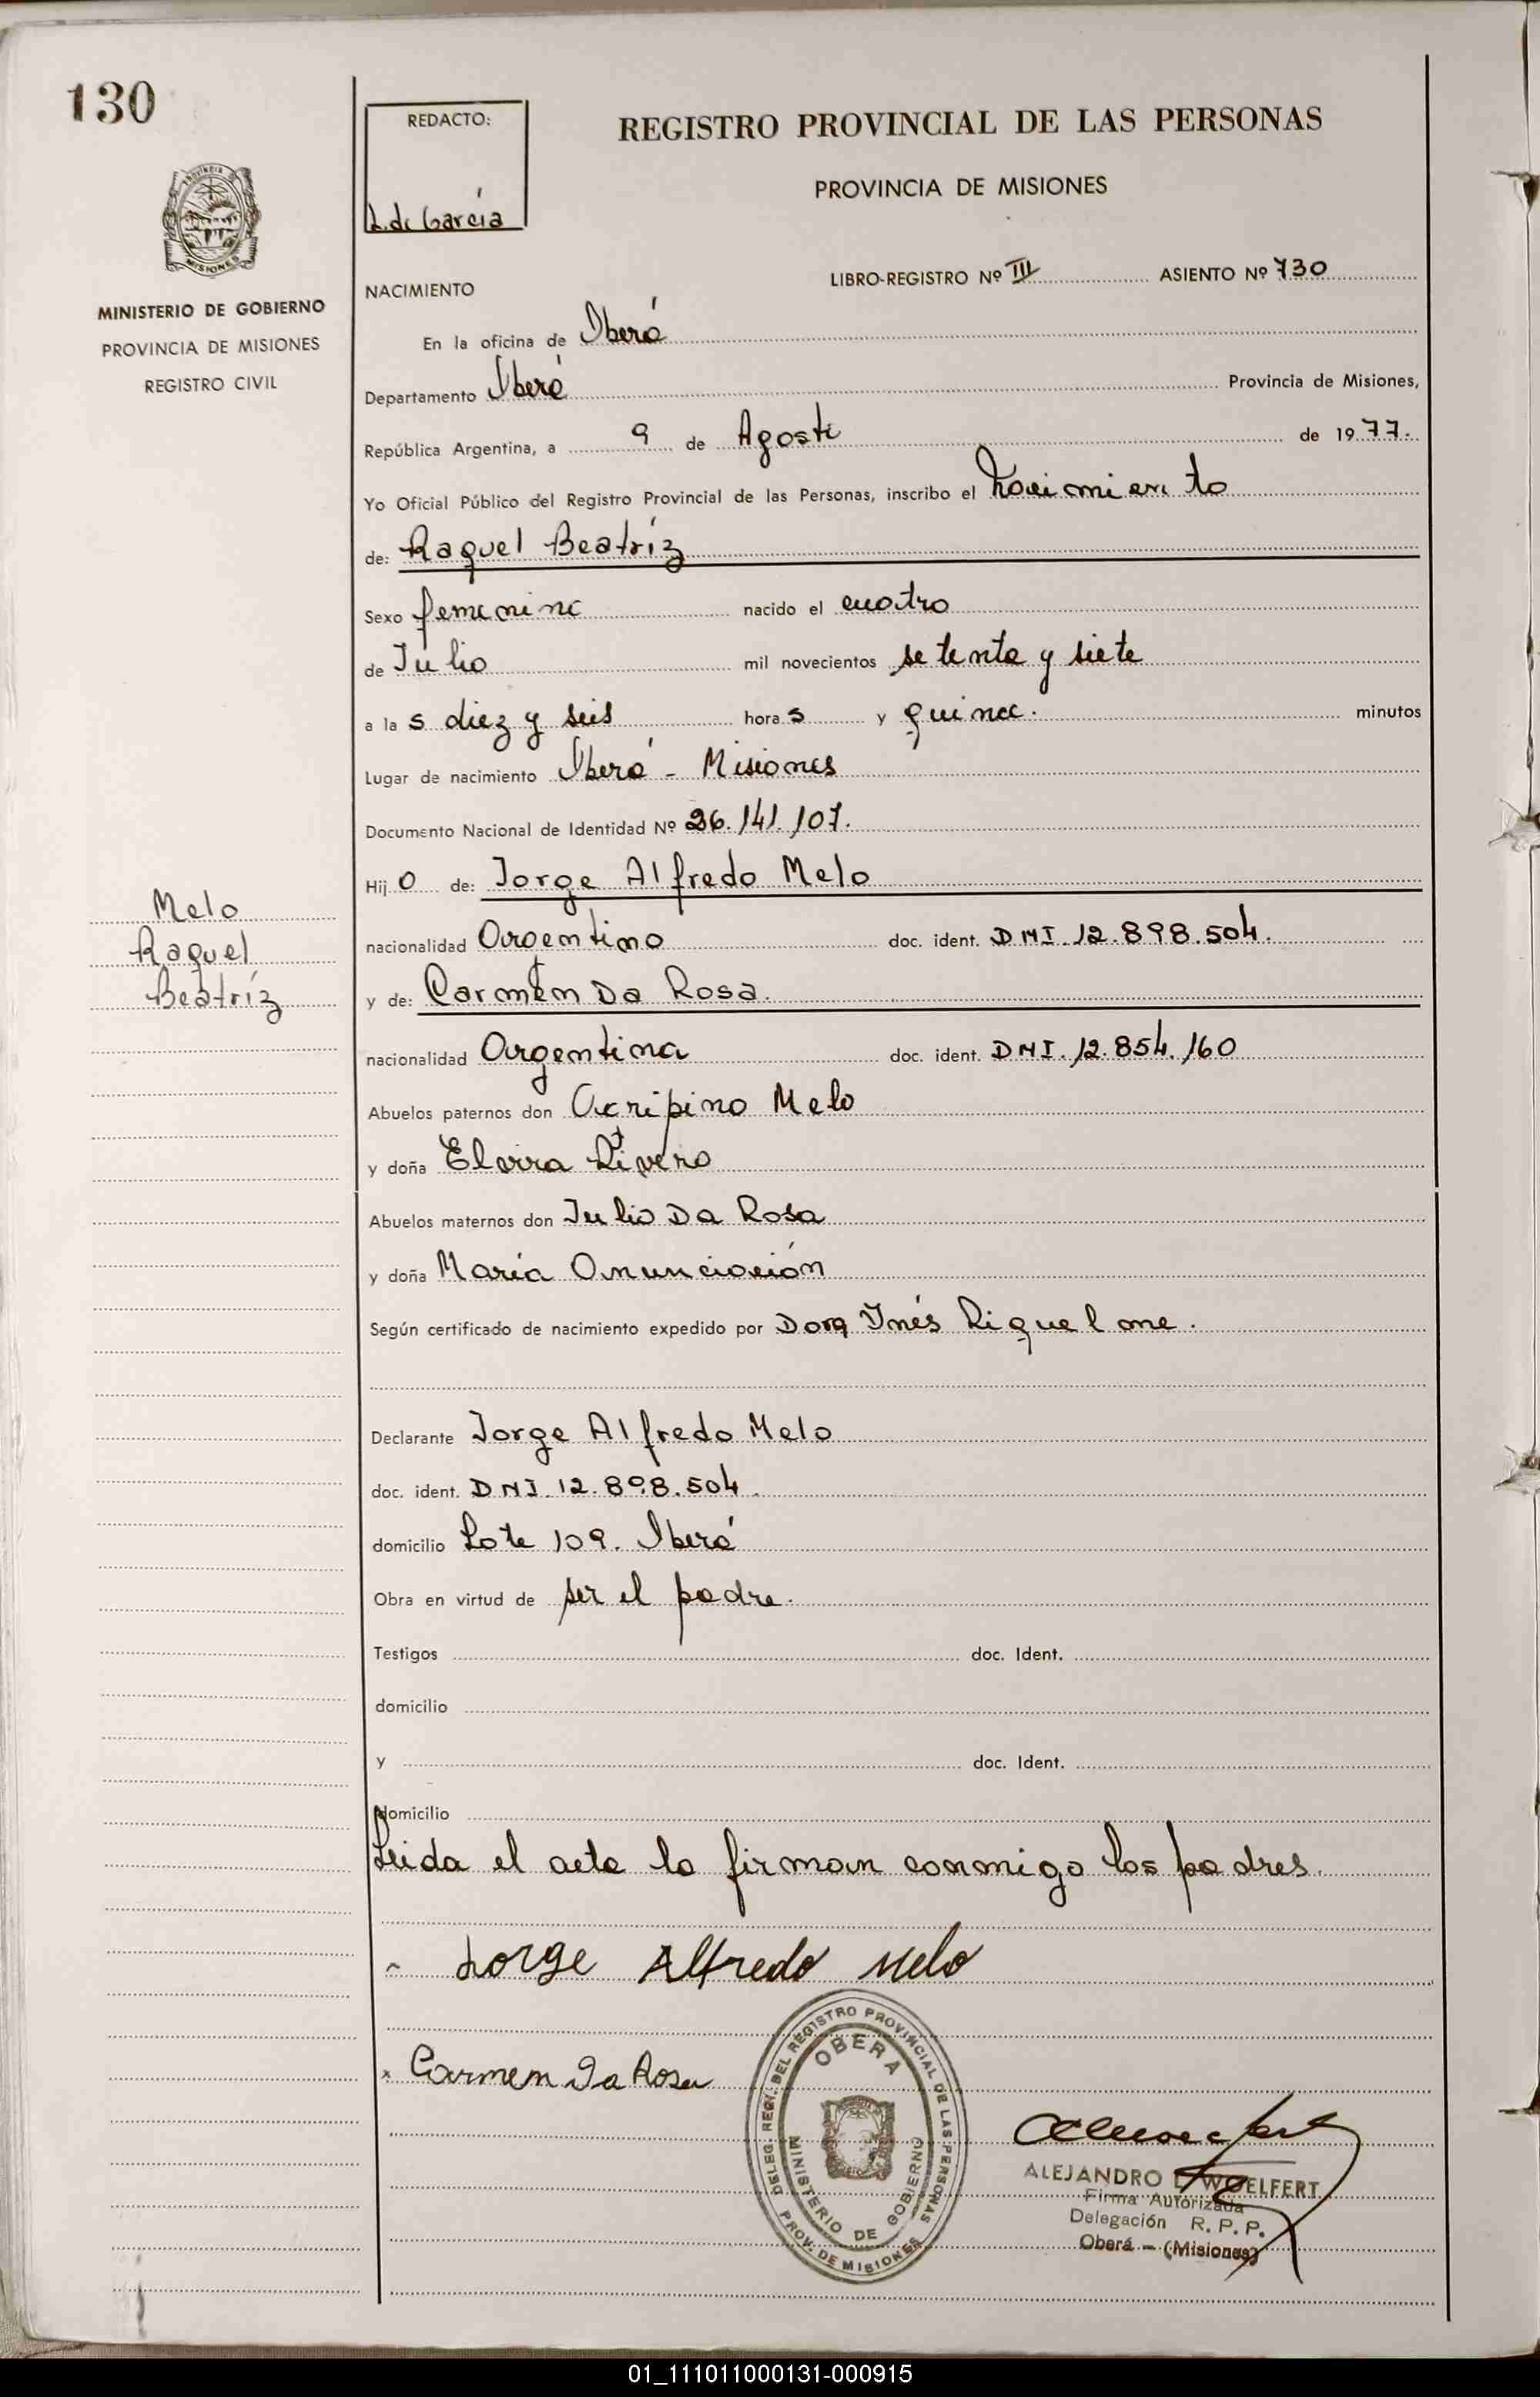 130
REDACTO:
L. de García
REGISTRO PROVINCIAL DE LAS PERSONAS
PROVINCIA DE MISIONES
MISIONES
MINISTERIO DE GOBIERNO
PROVINCIA DE MISIONES
REGISTRO CIVIL
NACIMIENTO
LIBRO-REGISTRO Nº III ASIENTO Nº 730
En la oficina de Oberá
Departamento Oberá Provincia de Misiones,
República Argentina, a 9 de Agosto de 1977.
Yo Oficial Público del Registro Provincial de las Personas, inscribo el Nacimiento
de: Raquel Beatríz
Sexo femenino nacido el cuatro
de Julio mil novecientos setenta y siete
a las diez y seis horas y quince. minutos
Lugar de nacimiento Oberá - Misiones
Documento Nacional de Identidad Nº 26.141.107.
Hijo de: Jorge Alfredo Melo
Melo
Raquel
Beatríz
nacionalidad Argentino doc. ident. DNI. 12.898.504.
y de: Carmen Da Rosa.
nacionalidad Argentina doc. ident. DNI. 12.854.160
Abuelos paternos don Acripino Melo
y doña Elvira Rivero
Abuelos maternos don Julio Da Rosa
y doña María Anunciación
Según certificado de nacimiento expedido por Dora Inés Riquelme.
Declarante Jorge Alfredo Melo
doc. ident. DNI. 12.898.504.
domicilio Lote 109. Oberá
Obra en virtud de ser el padre.
Testigos doc. Ident.
domicilio
y doc. Ident.
domicilio
Leida el acta la firman conmigo los padres.
Jorge Alfredo Melo
Carmen Da Rosa
DELEG. REGI. DEL REGISTRO PROVINCIAL DE LAS PERSONAS
OBERA
MINISTERIO DE GOBIERNO
PROV. DE MISIONES
ALEJANDRO L. WOELFERT
Firma Autorizada
Delegación R. P. P.
Oberá - (Misiones)
01_111011000131-000915